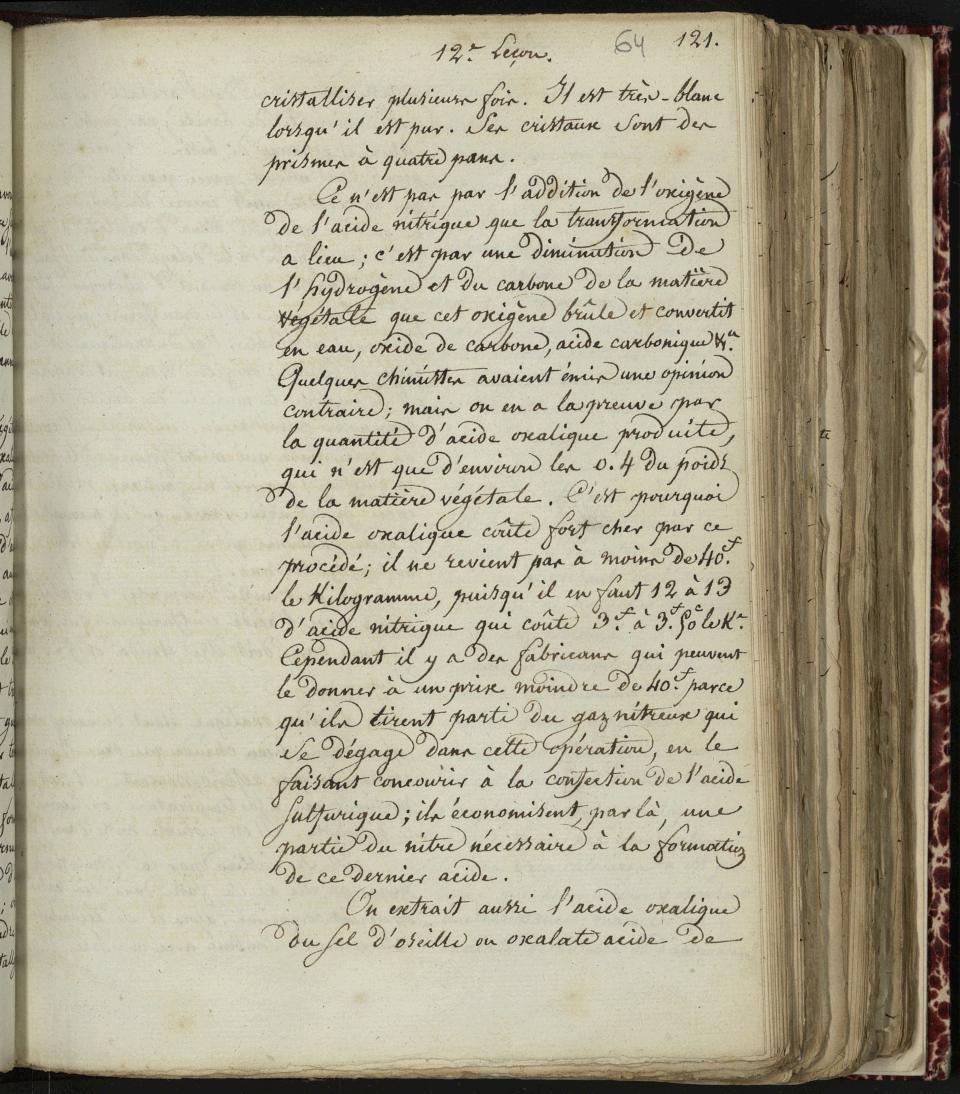 64 121.
12.e Leçon.
cristalliser plusieurs fois. Il est très-blanc
lorsqu'il est pur. Ses cristaux sont des
prismes à quatre pans.
Ce n'est pas par l'addition de l'oxigène
de l'acide nitrique que la transformation
a lieu ; c'est par une diminution de
l'hydrogène et du carbone de la matière
végétale que cet oxigène brûle et convertit
en eau, oxide de carbone, acide carbonique &.a
Quelques chimistes avaient émis une opinion
contraire ; mais on en a la preuve par
la quantité d'acide oxalique produite,
qui n'est que d'environ les 0.4 du poids
de la matière végétale. C'est pourquoi
l'acide oxalique coûte fort cher par ce
procédé ; il ne revient pas à moins de 40.f
le Kilogramme, puisqu'il en faut 12 à 13
d'acide nitrique qui coûte 3.f à 3.f 50c le K.e
Cependant il y a des fabricans qui peuvent
le donner à un prix moindre de 40.f parce
qu'ils tirent parti du gaz nitreux qui
se dégage dans cette opération, en le
faisant concourir à la confection de l'acide
sulfurique ; ils économisent, par là, une
partie du nitre nécessaire à la formation
de ce dernier acide.
On extrait aussi l'acide oxalique
du sel d'oseille ou oxalate acide de